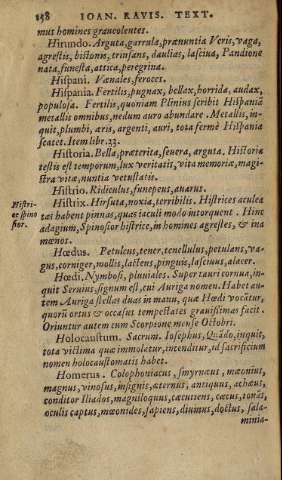 158 IOAN. RAVIS. TEXT.
mus homines graueolentes.
Hirundo. Arguta, garrula, prænuntia Veris, vaga,
agrestis, bistonis, trinsans, daulias, lasciua, Pandione
nata, funesta, attica, peregrina.
Hispani. Vænales, feroces.
Hispania. Fertilis, pugnax, bellax, horrida, audax,
populosa. Fertilis, quoniam Plinius scribit Hispaniã
metallis omnibus, nedum auro abundare. Metallis, in-
quit, plumbi, æris, argenti, auri, tota fermè Hispania
scatet. Item lib. 33.
Historia. Bella, præterita, seuera, arguta. Historia
testis est temporum, lux veritatis, vita memoriæ, magi-
stra vitæ, nuntia vetustatis.
Histrio. Ridiculus, funepeus, auarus.
Histrix. Hirsuta, noxia, terribilis. Histrices aculea
Histri-
ce spino
sior.
tai habent pinnas, quas iaculi modo intorquent. Hinc
adagium, Spinosior histrice, in homines agrestes, & ina
mœnos.
Hœdus. Petulens, tener, tenellulus, petulans, va-
gus, corniger, mollis, lactens, pinguis, lasciuus, alacer.
Hœdi. Nymbosi, pluuiales. Super tauri cornua, in-
quit Seruius, signum est, cui Auriga nomen. Habet au-
tem Auriga stellas duas in manu, quæ Hœdi vocãtur,
quorũ ortus & occasus tempestates grauissimas facit.
Oriuntur autem cum Scorpione mense Octobri.
Holocaustum. Sacrum. Iosephus, Quãdo, inquit,
tota victima quæ immolatur, incenditur, id sacrificium
nomen holocaustomatis habet.
Homerus. Colophoniacus, smyrnæus, mæonius,
magnus, vinosus, insignis, æternus, antiquus, achæus,
conditor Iliados, magniloquus, cæcutiens, cæcus, tonãs,
oculis captus, mæonides, sapiens, diuinus, doctus, sala-
minia-